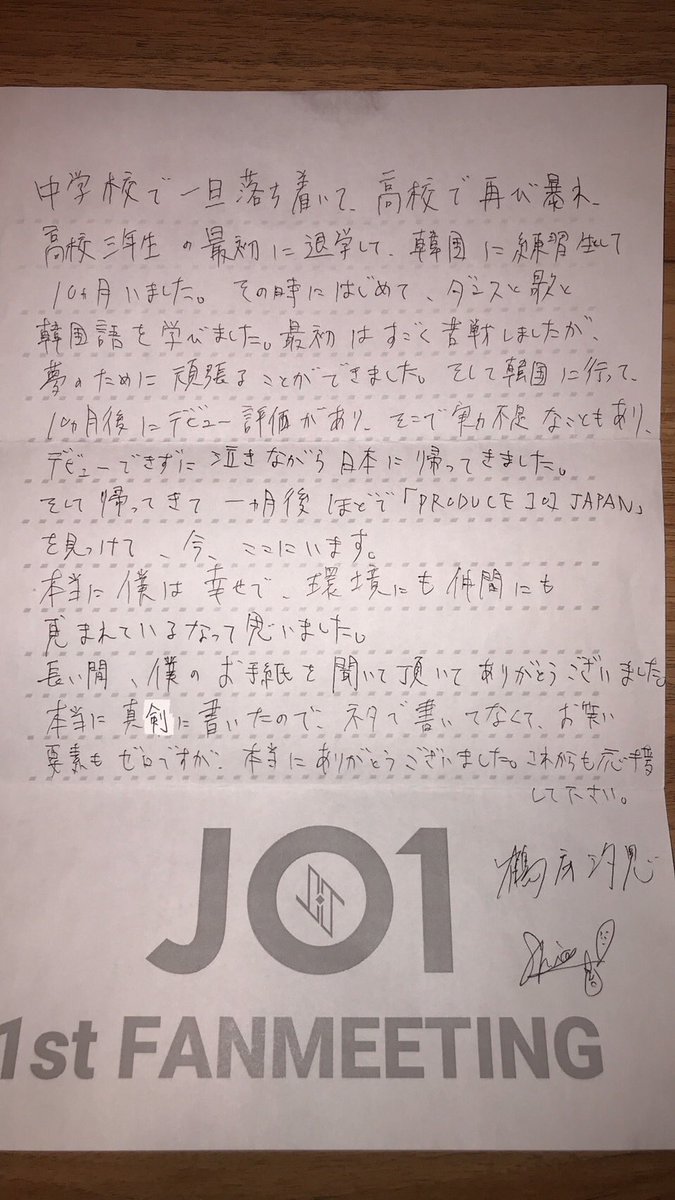 中学校で一旦落ち着いて、高校で再び暴れ、
高校三年生の最初に退学して、韓国に練習生して
10ヵ月いました。その時にはじめて、ダンスと歌と
韓国語を学びました。最初はすごく苦戦しましたが、
夢のために頑張ることができました。そして韓国に行って、
10ヵ月後にデビュー評価があり、そこで実力不足なこともあり、
デビューできずに泣きながら日本に帰ってきました。
そして帰ってきて一ヵ月後ほどで「PRODUCE 101 JAPAN」
を見つけて、今、ここにいます。
本当に僕は幸せで、環境にも仲間にも
恵まれているなって思いました。
長い間、僕のお手紙を聞いて頂いてありがとうございました。
本当に真剣に書いたので、ネタで書いてなくて、お笑い
要素もゼロですが、本当にありがとうございました。これからも応援
して下さい。
鶴房汐恩
JO1
1st FANMEETING